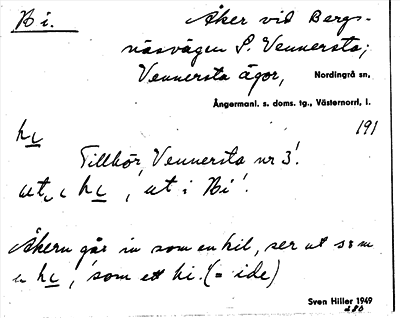 Hi.
Åker vid Bergs-
näsvägen S. Vennersta;
Vennersta ägor, Nordingrå sn,
Ångermanl. s. doms. tg., Västernorrl. l.
hi 191
Tillhör Vennersta nr 3.
ut i hi, ut i Hi.
Åkern går in som en kil, ser ut som
en hi, som ett hi. (= ide)
Sven Hiller 1949